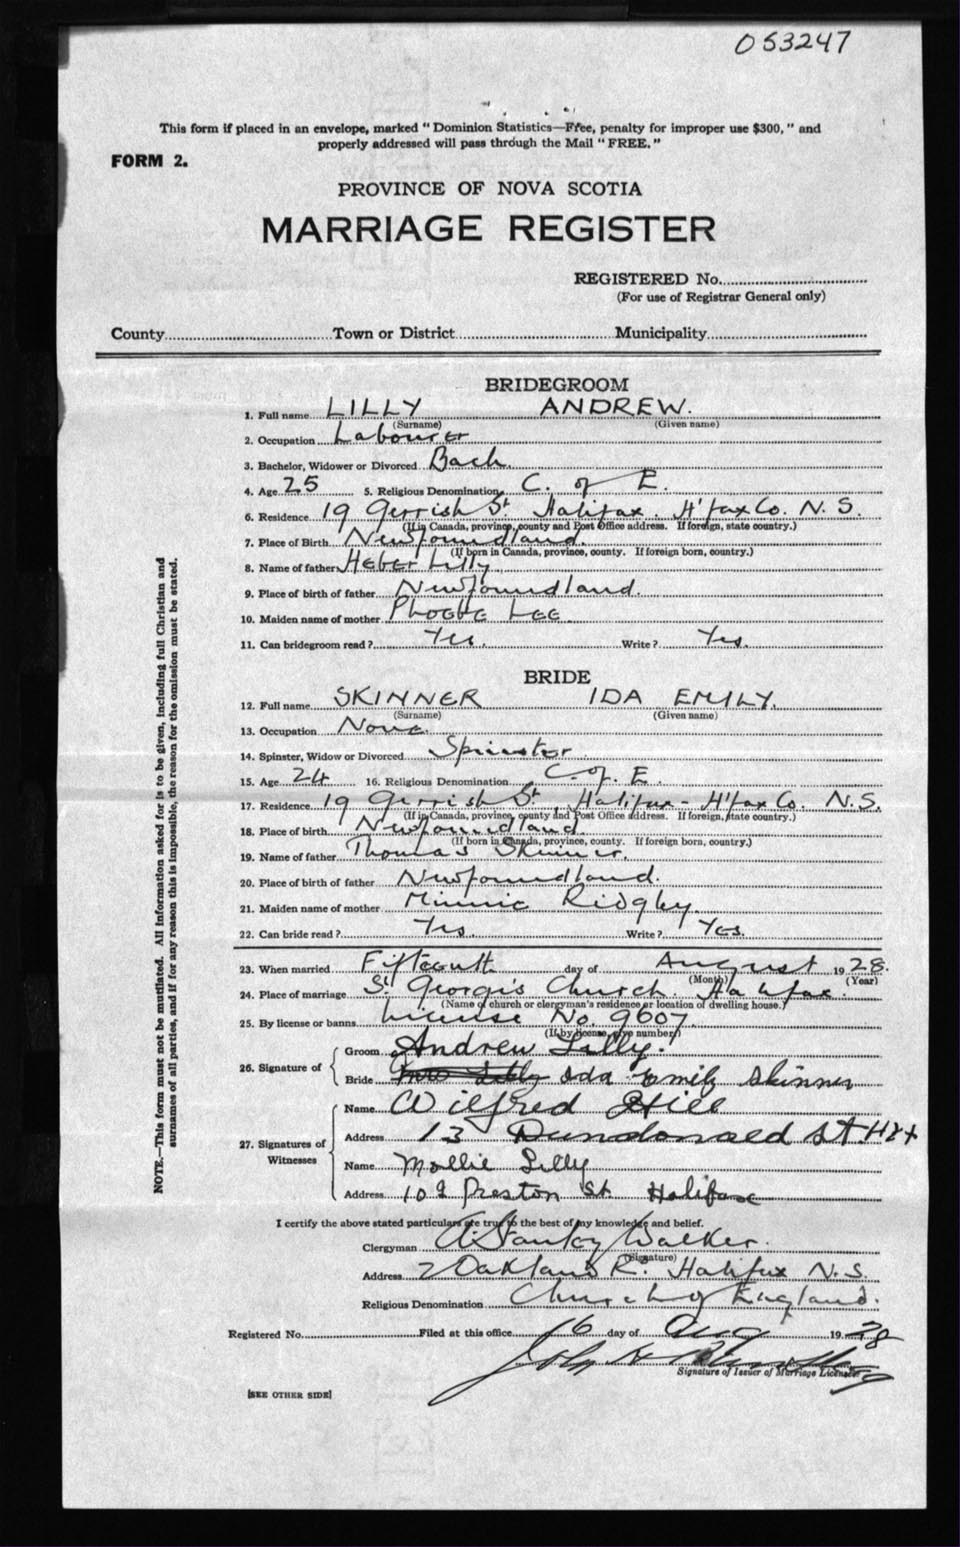 053247
This form if placed in an envelope, marked "Dominion Statistics—Ffee, penalty for improper use $300," and
properly addressed will pass through the Mail "FREE."
FORM 2.
PROVINCE OF NOVA SCOTIA
MARRIAGE REGISTER
REGISTERED No.
(For use of Registrar General only)
County Town or District Municipality
BRIDEGROOM
1. Full name LILLY ANDREW.
(Surname) (Given name)
2. Occupation Labourer
3. Bachelor, Widower or Divorced Bach.
4. Age 25 5. Religious Denomination C. of E.
6. Residence 19 Gerrish St Halifax. H'fax Co. N.S.
(If in Canada, province, county and Post Office address. If foreign, state country.)
7. Place of Birth Newfoundland.
(If born in Canada, province, county. If foreign born, country.)
8. Name of father Heber Lilly
9. Place of birth of father Newfoundland.
10. Maiden name of mother Phoebe Lee.
11. Can bridegroom read? Yes. Write? Yes.
BRIDE
12. Full name SKINNER IDA EMILY.
(Surname) (Given name)
13. Occupation None.
14. Spinster, Widow or Divorced Spinster
15. Age 24 16. Religious Denomination C of. E.
17. Residence 19 Gerrish St, Halifax - H'fax Co. N.S.
(If in Canada, province, county and Post Office address. If foreign, state country.)
18. Place of birth Newfoundland.
(If born in Canada, province, county. If foreign born, country.)
19. Name of father Thomas Skinner.
20. Place of birth of father Newfoundland.
21. Maiden name of mother Minnie Ridgley.
22. Can bride read? Yes. Write? Yes.
23. When married Fifteenth day of August 1928.
(Month) (Year)
24. Place of marriage St George's Church Halifax.
(Name of church or clergyman's residence or location of dwelling house.)
25. By license or banns License No. 9607.
(If by license, give number)
26. Signature of
Groom Andrew Lilly.
Bride Ida Emily Skinner
27. Signatures of Witnesses
Name Wilfred Hill
Address 13 Dundonald St Hfx
Name Mollie Lilly
Address 109 Preston St. Halifax
I certify the above stated particulars are true to the best of my knowledge and belief.
Clergyman A. Stanley Walker.
(Signature)
Address 2 Oakland R. Halifax N.S.
Religious Denomination Church of England.
Registered No. Filed at this office 16 day of Aug 1928
Signature of Issuer of Marriage Licenses
[SEE OTHER SIDE]
NOTE.—This form must not be mutilated. All information asked for is to be given, including full Christian and
surnames of all parties, and if for any reason this is impossible, the reason for the omission must be stated.